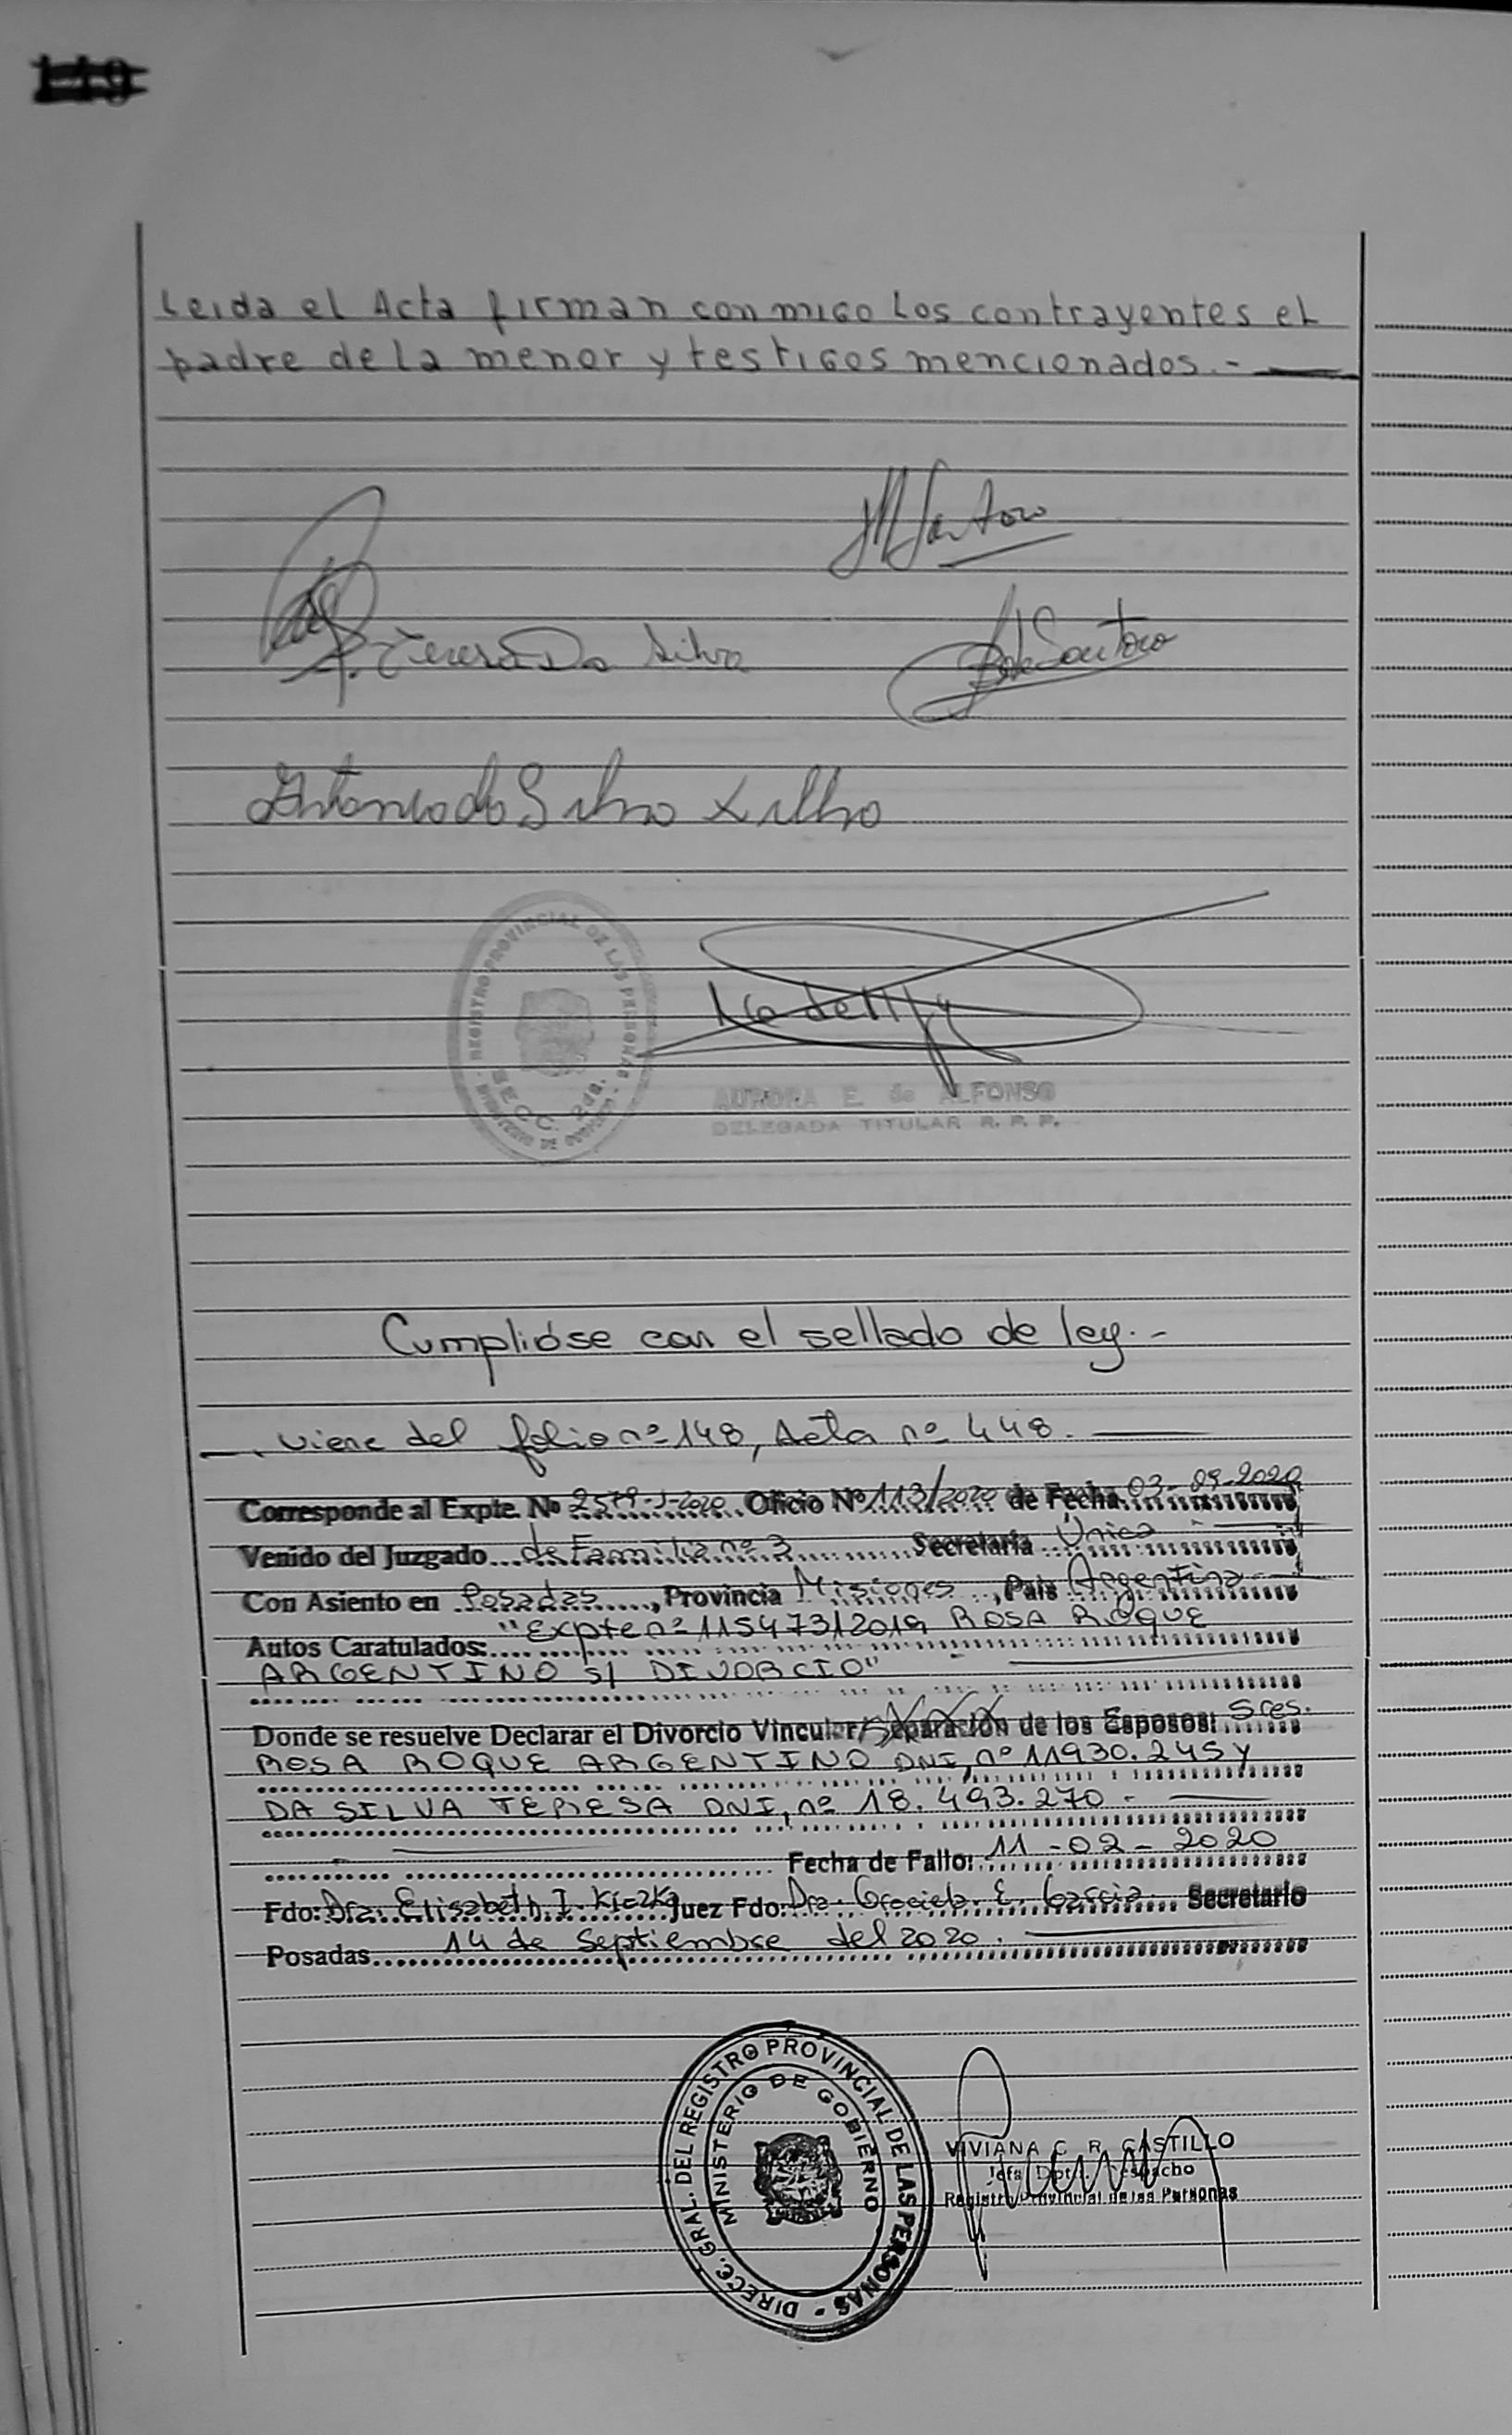 149
Leida el Acta firman conmigo los contrayentes el
padre de la menor y testigos mencionados.-
M Santoro
Teresa Da Silva
de Santoro
Antonio da Silva Filho
REGISTRO PROVINCIAL DE LAS PERSONAS - MINISTERIO DE GOBIERNO -
SECC. 2da.
AURORA E. de ALFONSO
DELEGADA TITULAR R. P. P.
Cumplióse con el sellado de ley.-
Viene del folio nº 148, Acta nº 448.
Corresponde al Expte. Nº 2579-J-2020 Oficio Nº 113/2020 de Fecha 03-09-2020
Venido del Juzgado de Familia nº 3 Secretaría Única
Con Asiento en Posadas, Provincia Misiones, País Argentina
Autos Caratulados: "Expte nº 115473/2019 ROSA ROQUE
ARGENTINO s/ DIVORCIO"
Donde se resuelve Declarar el Divorcio Vincular/Separación de los Esposos: Sres.
ROSA ROQUE ARGENTINO DNI, nº 11930.245 y
DA SILVA TERESA DNI, nº 18.493.270.-
Fecha de Fallo: 11-02-2020
Fdo: Dra. Elisabeth I. Kiczka Juez Fdo: Dra. Graciela E. Garcia Secretario
Posadas 14 de Septiembre del 2020.
DIRECC. GRAL. DEL REGISTRO PROVINCIAL DE LAS PERSONAS -
MINISTERIO DE GOBIERNO
VIVIANA C. R. CASTILLO
Jefa Dpto. Despacho
Registro Provincial de las Personas